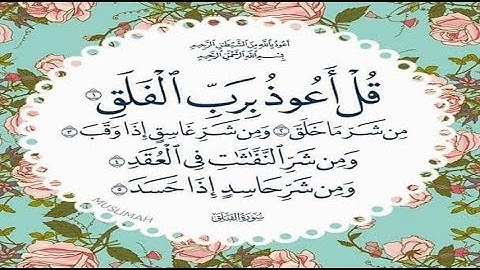 أعوذ بالله من الشيطن الرجيم
بسم الله الرحمن الرحيم
قُلْ أَعُوذُ بِرَبِّ ٱلْفَلَقِ ١
مِن شَرِّ مَا خَلَقَ ٢ وَمِن شَرِّ غَاسِقٍ إِذَا وَقَبَ ٣
وَمِن شَرِّ ٱلنَّفَّٰثَٰتِ فِى ٱلْعُقَدِ ٤
وَمِن شَرِّ حَاسِدٍ إِذَا حَسَدَ ٥
MUSLIMAH
سورة الفلق